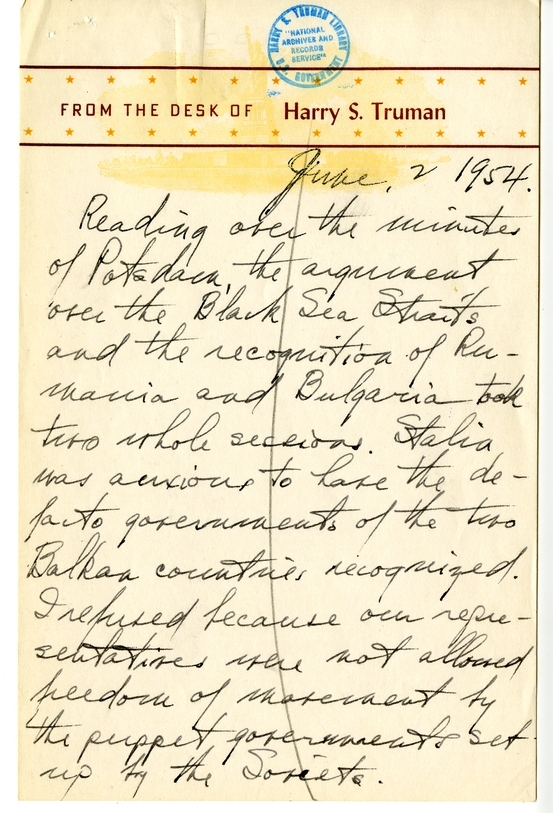 HARRY S. TRUMAN LIBRARY
"NATIONAL
ARCHIVES AND
RECORDS
SERVICE"
U.S. GOVERNMENT
FROM THE DESK OF Harry S. Truman
June, 2 1954.
Reading over the minutes
of Potsdam, the argument
over the Black Sea Straits
and the recognition of Ru-
mania and Bulgaria took
two whole sessions. Stalin
was anxious to have the de-
facto governments of the two
Balkan countries recognized.
I refused because our repre-
sentatives were not allowed
freedom of movement by
the puppet governments set
up by the Soviets.